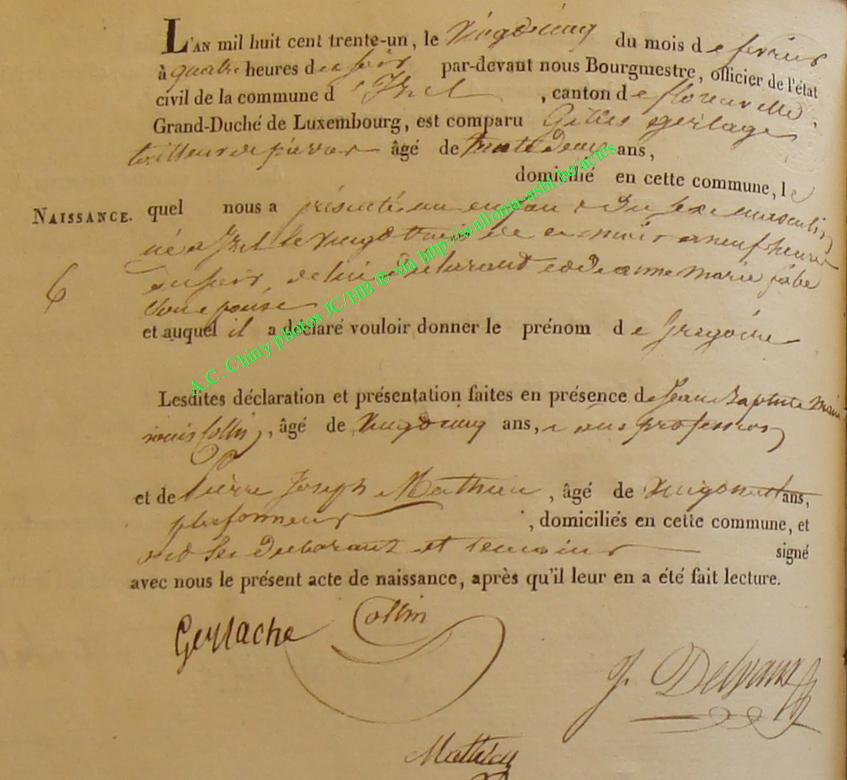 L'AN mil huit cent trente-un, le vingtcinq du mois de fevrier
à quatre heures du soir par-devant nous Bourgmestre, officier de l'état
civil de la commune d'Izel, canton de florenville,
Grand-Duché de Luxembourg, est comparu Gilles gerlage
tailleur de pierres âgé de trente deux ans,
domicilié en cette commune, le
NAISSANCE. quel nous a présenté un enfant du sexe masculin
né a Izel le vingt trois de ce mois a neuf heures
6
du soir, de lui declarant et de jeanne marie fabe
son epouse
et auquel il a déclaré vouloir donner le prénom de Gregoire
Lesdites déclaration et présentation faites en présence de Jean Baptiste
Collin, âgé de vingtcinq ans, sans profession
et de Pierre Joseph Mathieu, âgé de ans,
plafonneur, domiciliés en cette commune, et
ont les declarant et temoins signé
avec nous le présent acte de naissance, après qu'il leur en a été fait lecture.
Gerlache Collin
J. Delvaux
Mathieu
A.C. Chiny photos JC/HB ® via http://swallonia-asbl.be/actes